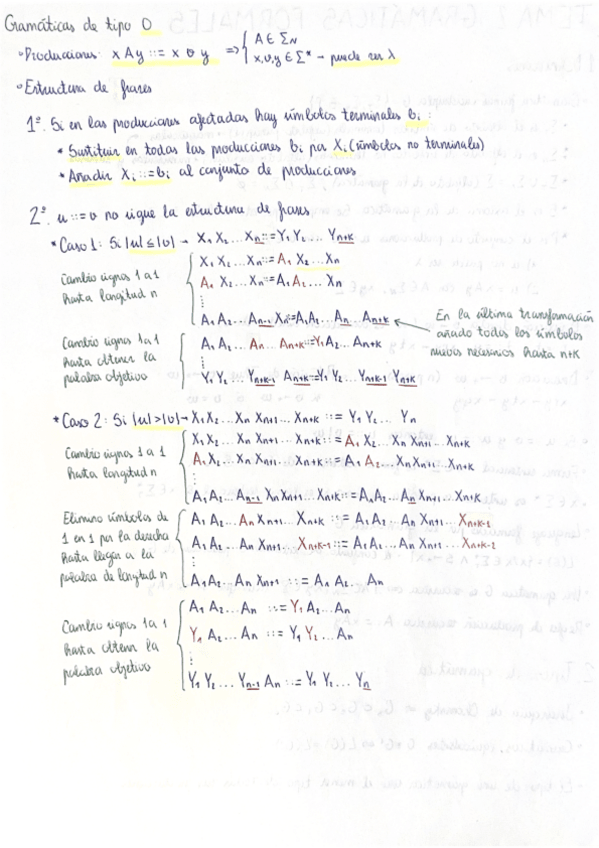 Gramáticas de tipo 0
• Producciones: x A y ::= x v y => { A ∈ Σ_N
x, v, y ∈ Σ* → puede ser λ
• Estructura de frases
1º. Si en las producciones afectadas hay símbolos terminales b_i :
* Sustituir en todas las producciones b_i por X_i (símbolos no terminales)
* Añadir X_i ::= b_i al conjunto de producciones
2º. u ::= v no sigue la estructura de frases
* Caso 1: Si |u| ≤ |v| → X_1 X_2 ... X_n ::= Y_1 Y_2 ... Y_n+k
Cambio signos 1 a 1 hasta longitud n
X_1 X_2 ... X_n ::= A_1 X_2 ... X_n
A_1 X_2 ... X_n ::= A_1 A_2 ... X_n
⋮
A_1 A_2 ... A_n-1 X_n ::= A_1 A_2 ... A_n ... A_n+k
En la última transformación añado todos los símbolos nuevos necesarios hasta n+k
Cambio signos 1 a 1 hasta obtener la palabra objetivo
A_1 A_2 ... A_n ... A_n+k ::= Y_1 A_2 ... A_n+k
⋮
Y_1 Y_2 ... Y_n+k-1 A_n+k ::= Y_1 Y_2 ... Y_n+k-1 Y_n+k
* Caso 2: Si |u| > |v| → X_1 X_2 ... X_n X_n+1 ... X_n+k ::= Y_1 Y_2 ... Y_n
Cambio signos 1 a 1 hasta longitud n
X_1 X_2 ... X_n X_n+1 ... X_n+k ::= A_1 X_2 ... X_n X_n+1 ... X_n+k
A_1 X_2 ... X_n X_n+1 ... X_n+k ::= A_1 A_2 ... X_n X_n+1 ... X_n+k
⋮
A_1 A_2 ... A_n-1 X_n X_n+1 ... X_n+k ::= A_1 A_2 ... A_n X_n+1 ... X_n+k
Elimino símbolos de 1 en 1 por la derecha hasta llegar a la palabra de longitud n
A_1 A_2 ... A_n X_n+1 ... X_n+k ::= A_1 A_2 ... A_n X_n+1 ... X_n+k-1
A_1 A_2 ... A_n X_n+1 ... X_n+k-1 ::= A_1 A_2 ... A_n X_n+1 ... X_n+k-2
⋮
A_1 A_2 ... A_n X_n+1 ::= A_1 A_2 ... A_n
Cambio signos 1 a 1 hasta obtener la palabra objetivo
A_1 A_2 ... A_n ::= Y_1 A_2 ... A_n
Y_1 A_2 ... A_n ::= Y_1 Y_2 ... A_n
⋮
Y_1 Y_2 ... Y_n-1 A_n ::= Y_1 Y_2 ... Y_n